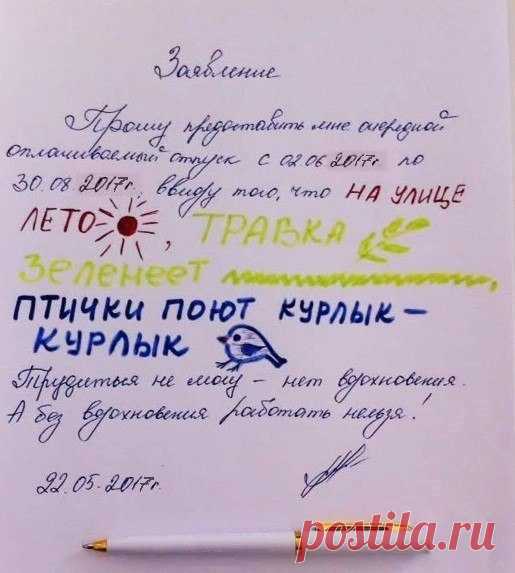 Заявление
Прошу предоставить мне очередной
оплачиваемый отпуск с 02.06 2017г. по
30.08 2017г. ввиду того, что НА УЛИЦЕ
ЛЕТО, ТРАВКА
ЗЕЛЕНЕЕТ,
ПТИЧКИ ПОЮТ КУРЛЫК –
КУРЛЫК
Трудиться не могу – нет вдохновения.
А без вдохновения работать нельзя!
22.05.2017г.
postila.ru